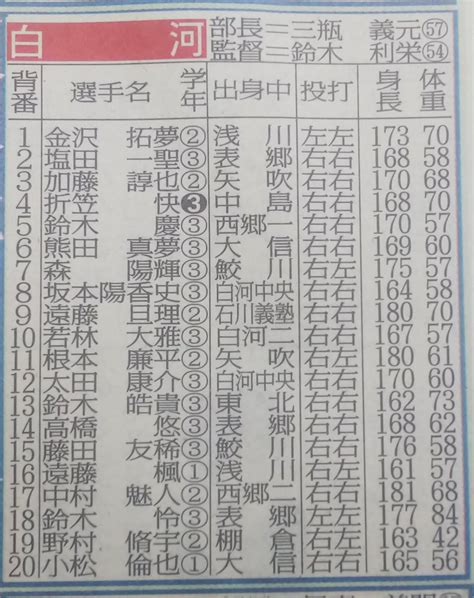 白河 部長＝三瓶 義元57
監督＝鈴木 利栄54
背番 選手名 学年 出身中 投打 身長 体重
1 金沢 拓夢② 浅川 左左 173 70
2 塩田 一聖③ 表郷 右右 168 58
3 加藤 諄也② 矢吹 右右 170 68
4 折笠 快❸ 中島 右右 168 70
5 鈴木 慶③ 西郷一 右右 170 57
6 熊田 真夢③ 大信 右右 169 60
7 森 陽輝③ 鮫川 右左 175 57
8 坂本陽香史③ 白河中央 右右 164 58
9 遠藤 旦理② 石川義塾 右右 180 70
10 若林 大雅③ 白河二 右右 167 57
11 根本 廉平② 矢吹 右左 180 61
12 太田 康介③ 白河中央 右右 170 60
13 鈴木 皓貴③ 東北 右右 162 73
14 高橋 悠③ 表郷 右右 168 62
15 藤田 友稀③ 鮫川 右右 176 58
16 遠藤 楓① 浅川 右右 161 57
17 中村 魅人② 西郷二 右右 181 68
18 鈴木 怜③ 表郷 左左 177 84
19 野村 脩宇② 棚倉 右右 163 42
20 小松 倫也① 大信 右右 165 56